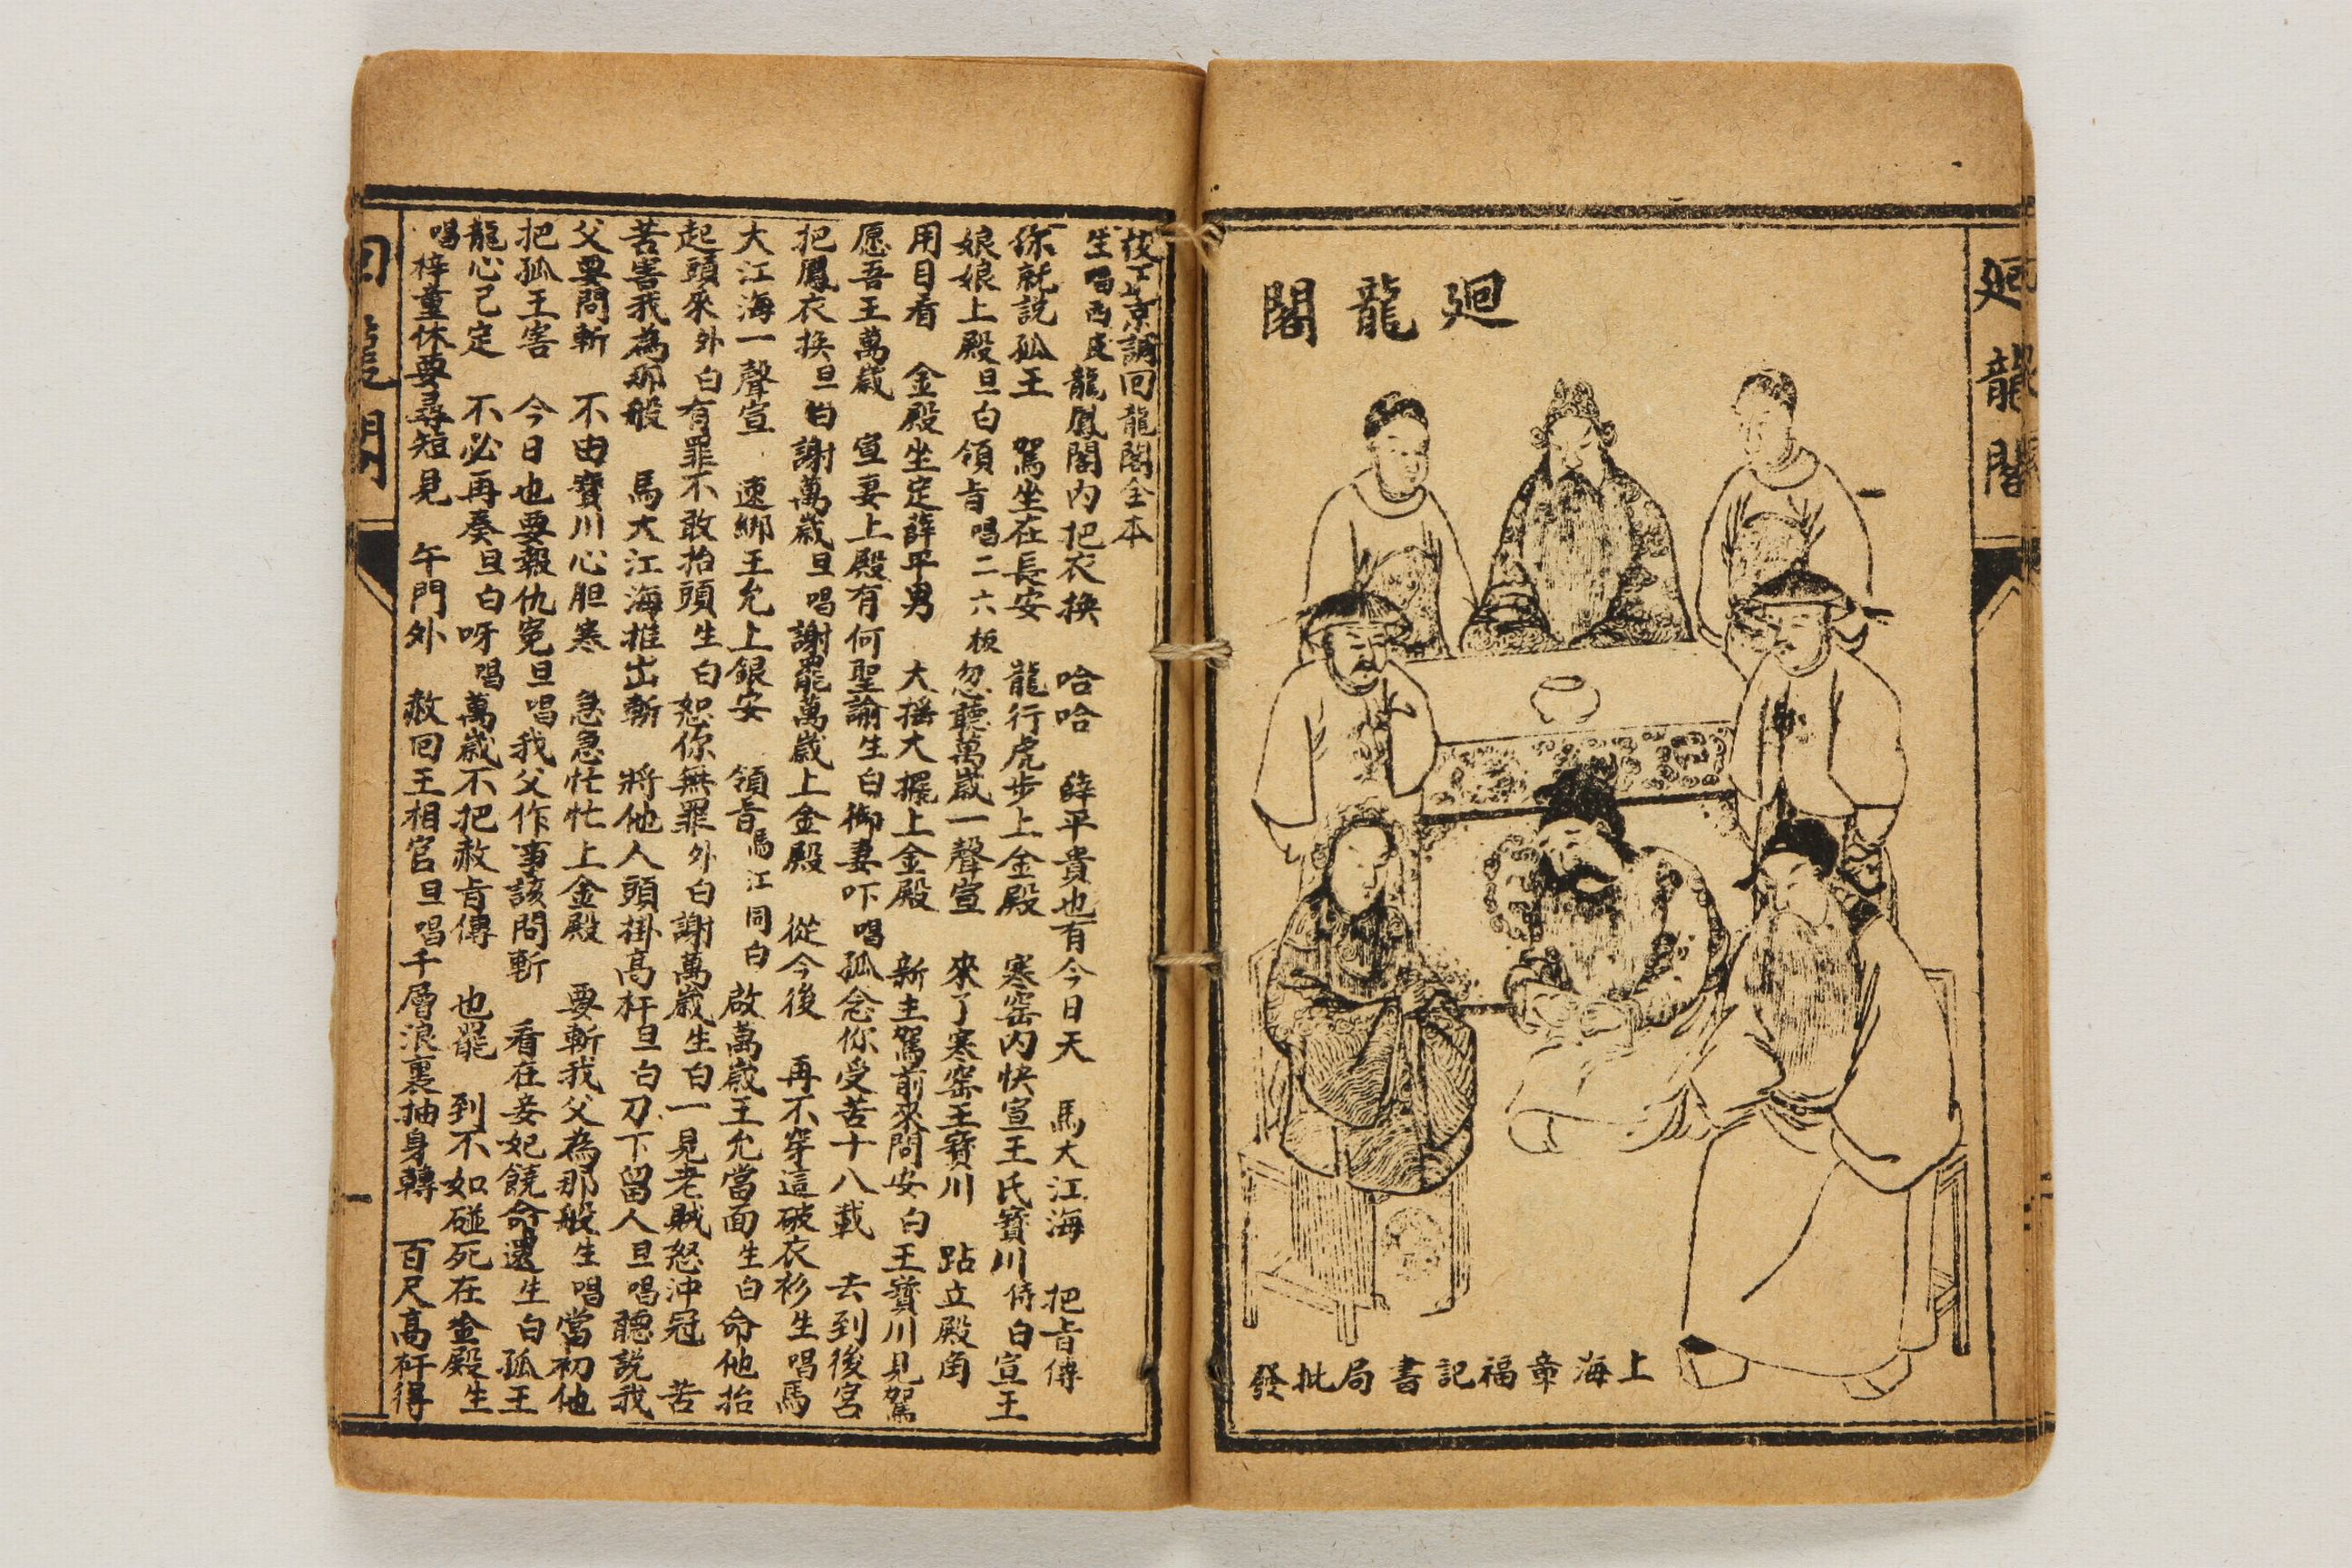 廻龍閣
廻龍閣
上海章福記書局批發
校正京調回龍閣全本
生唱西皮 龍鳳閣內把衣換 哈哈 薛平貴也有今日天 馬大江海 把旨傳
你就說孤王 駕坐在長安 龍行虎步上金殿 寒窑內快宣王氏寶川侍白宣王
娘娘上殿旦白領旨唱二六板忽聽萬歲一聲宣 來了寒窑王寶川 跕立殿角
用目看 金殿坐定薛平男 大搖大擺上金殿 新主駕前來問安白王寶川見駕
愿吾王萬歲 宣妻上殿有何聖諭生白御妻吓唱孤念你受苦十八載 去到後宮
把鳳衣換旦白謝萬歲旦唱謝罷萬歲上金殿 從今後 再不穿這破衣衫生唱馬
大江海一聲宣 速綁王允上銀安 領旨馬江同白啟萬歲王允當面生白命他抬
起頭來外白有罪不敢抬頭生白恕你無罪外白謝萬歲生白一見老賊怒沖冠 苦
苦害我為那般 馬大江海推出斬 將他人頭掛高杆旦白刀下留人旦唱聽說我
父要問斬 不由寶川心胆寒 急急忙忙上金殿 要斬我父為那般生唱當初他
把孤王害 今日也要報仇冤旦唱我父作事該問斬 看在妾妃饒命還生白孤王
龍心已定 不必再奏旦白呀唱萬歲不把赦旨傳 也罷 到不如碰死在金殿生
唱梓童休要尋短見 午門外 赦回王相官旦唱千層浪裏抽身轉 百尺高杆得
回龍閣
一